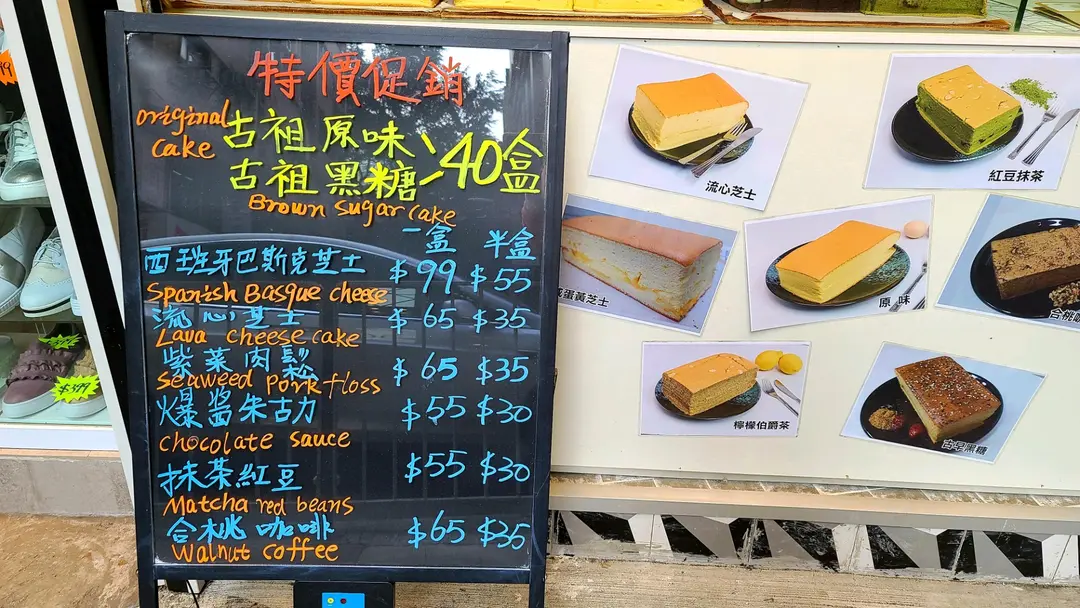 特價促銷
original cake
古祖原味
古祖黑糖
40盒
Brown sugar cake
一盒 半盒
西班牙巴斯克芝士 $99 $55
Spanish Basque cheese
流心芝士 $65 $35
Lava cheese cake
紫菜肉鬆 $65 $35
Seaweed Pork floss
爆醬朱古力 $55 $30
chocolate sauce
抹茶紅豆 $55 $30
Matcha red beans
合桃咖啡 $65 $35
Walnut coffee
流心芝士
紅豆抹茶
鹹蛋黃芝士
原味
合桃
檸檬伯爵茶
古早黑糖
$399